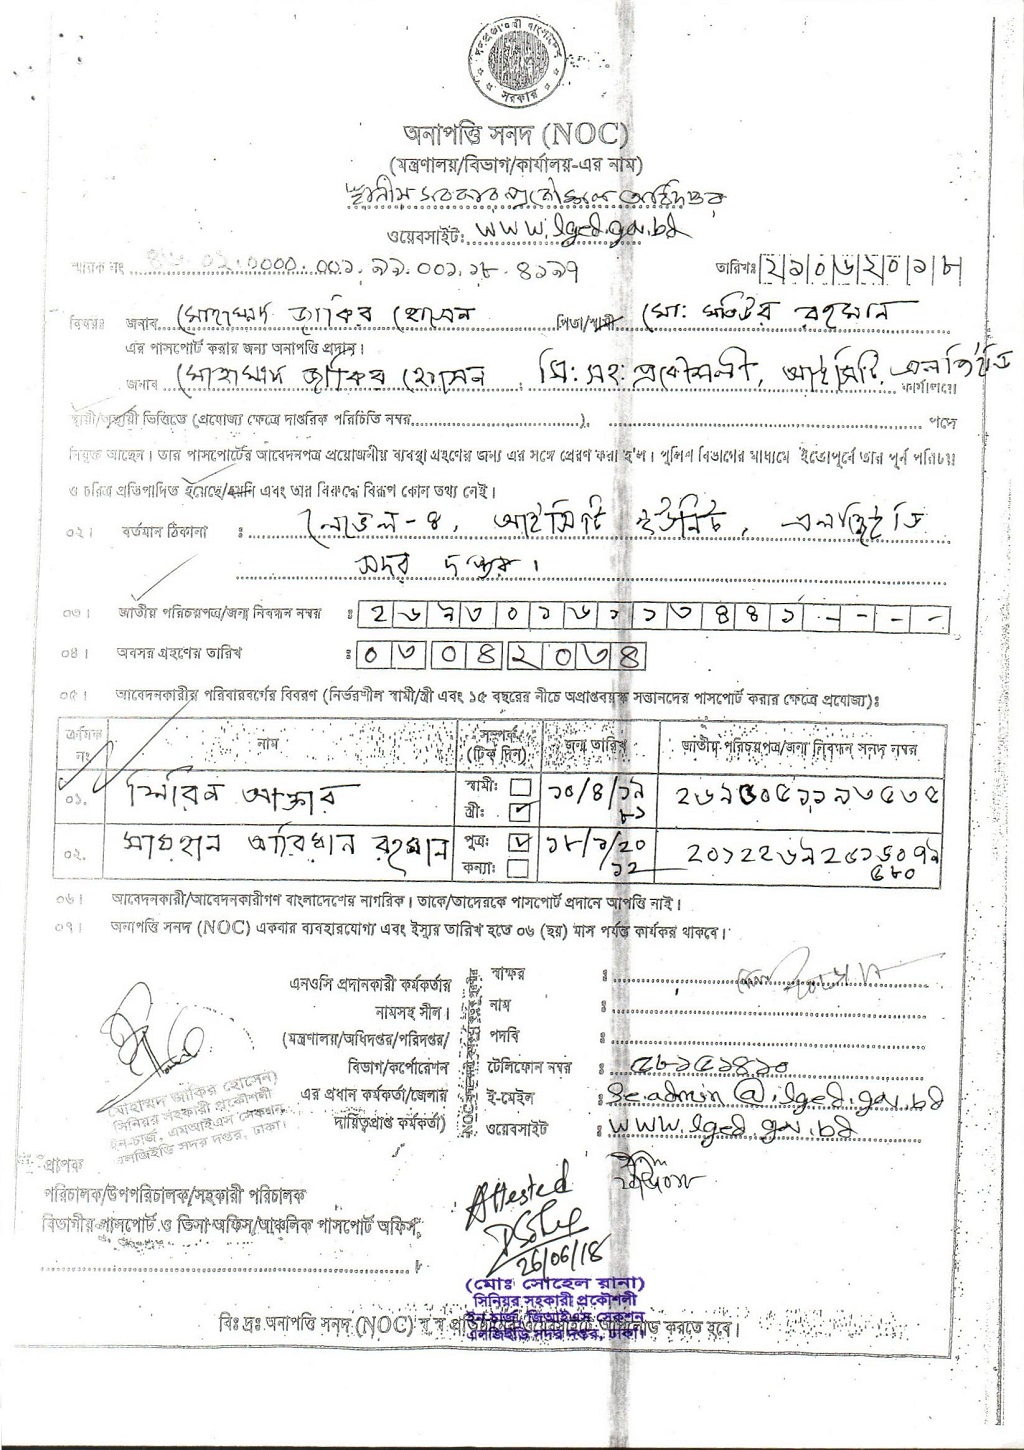 গণপ্রজাতন্ত্রী বাংলাদেশ সরকার
অনাপত্তি সনদ (NOC)
(মন্ত্রণালয়/বিভাগ/কার্যালয়-এর নাম)
স্থানীয় সরকার প্রকৌশল অধিদপ্তর
ওয়েবসাইট: www.lged.gov.bd
স্মারক নং ০২.০০০০.০০১.১১.০০১.১৮.৪১৯৭ তারিখঃ ২১০৬২০১৮
বিষয়ঃ জনাব মোহাম্মদ জাকির হোসেন পিতা/স্বামী মো: মতিউর রহমান
এর পাসপোর্ট করার জন্য অনাপত্তি প্রদান।
জনাব মোহাম্মদ জাকির হোসেন, সি: সহ: প্রকৌশলী, আইসিটি, এলজিইডি কার্যালয়ে
স্থায়ী/অস্থায়ী ভিত্তিতে (প্রযোজ্য ক্ষেত্রে দাপ্তরিক পরিচিতি নম্বর), পদে
নিযুক্ত আছেন। তার পাসপোর্টের আবেদনপত্র প্রয়োজনীয় ব্যবস্থা গ্রহণের জন্য এর সঙ্গে প্রেরণ করা হ'ল। পুলিশ বিভাগের মাধ্যমে ইতোপূর্বে তার পূর্ব পরিচয়
ও চরিত্র প্রতিপাদিত হয়েছে/হয়নি এবং তার বিরুদ্ধে বিরূপ কোন তথ্য নেই।
০২। বর্তমান ঠিকানা : লেভেল-৪, আইসিটি ইউনিট, এলজিইডি
সদর দপ্তর।
০৩। জাতীয় পরিচয়পত্র/জন্ম নিবন্ধন নম্বর : ২৬৯৩০১৬১১৩৪৪১----
০৪। অবসর গ্রহণের তারিখ : ০৩০৪২০৩৪
০৫। আবেদনকারীর পরিবারবর্গের বিবরণ (নির্ভরশীল স্বামী/স্ত্রী এবং ১৫ বছরের নীচে অপ্রাপ্তবয়স্ক সন্তানদের পাসপোর্ট করার ক্ষেত্রে প্রযোজ্য)ঃ
ক্রমিক নং নাম সম্পর্ক (টিক দিন) জন্ম তারিখ জাতীয় পরিচয়পত্র/জন্ম নিবন্ধন সনদ নম্বর
০১. শিরিন আক্তার স্বামী: স্ত্রী: ১০/৪/১৯৮১
০২. আরিয়ান রহমান পুত্র: কন্যা: ১৮/১/২০১২ ২০১২২৬৯২৫১৬০৭৯৫৮০
০৬। আবেদনকারী/আবেদনকারীগণ বাংলাদেশের নাগরিক। তাকে/তাদেরকে পাসপোর্ট প্রদানে আপত্তি নাই।
০৭। অনাপত্তি সনদ (NOC) একবার ব্যবহারযোগ্য এবং ইস্যুর তারিখ হতে ০৬ (ছয়) মাস পর্যন্ত কার্যকর থাকবে।
এনওসি প্রদানকারী কর্মকর্তার
নামসহ সীল।
(মন্ত্রণালয়/অধিদপ্তর/পরিদপ্তর/
বিভাগ/কর্পোরেশন
এর প্রধান কর্মকর্তা/জেলার
দায়িত্বপ্রাপ্ত কর্মকর্তা)
স্বাক্ষর :
নাম :
পদবি :
টেলিফোন নম্বর : ৫৮১৫১৪১০
ই-মেইল : se.admin@lged.gov.bd
ওয়েবসাইট : www.lged.gov.bd
মোহাম্মদ জাকির হোসেন)
সিনিয়র সহকারী প্রকৌশলী
ইন-চার্জ, এমআইএস সেকশন
এলজিইডি সদর দপ্তর, ঢাকা।
প্রাপক
পরিচালক/উপপরিচালক/সহকারী পরিচালক
বিভাগীয় পাসপোর্ট ও ভিসা অফিস/আঞ্চলিক পাসপোর্ট অফিস,
Attested
26/06/18
(মোঃ সোহেল রানা)
সিনিয়র সহকারী প্রকৌশলী
ইন-চার্জ, জিআইএস সেকশন
এলজিইডি সদর দপ্তর, ঢাকা।
বিঃ দ্রঃ অনাপত্তি সনদ (NOC) স্ব স্ব প্রতিষ্ঠানের ওয়েবসাইটে আপলোড করতে হবে।